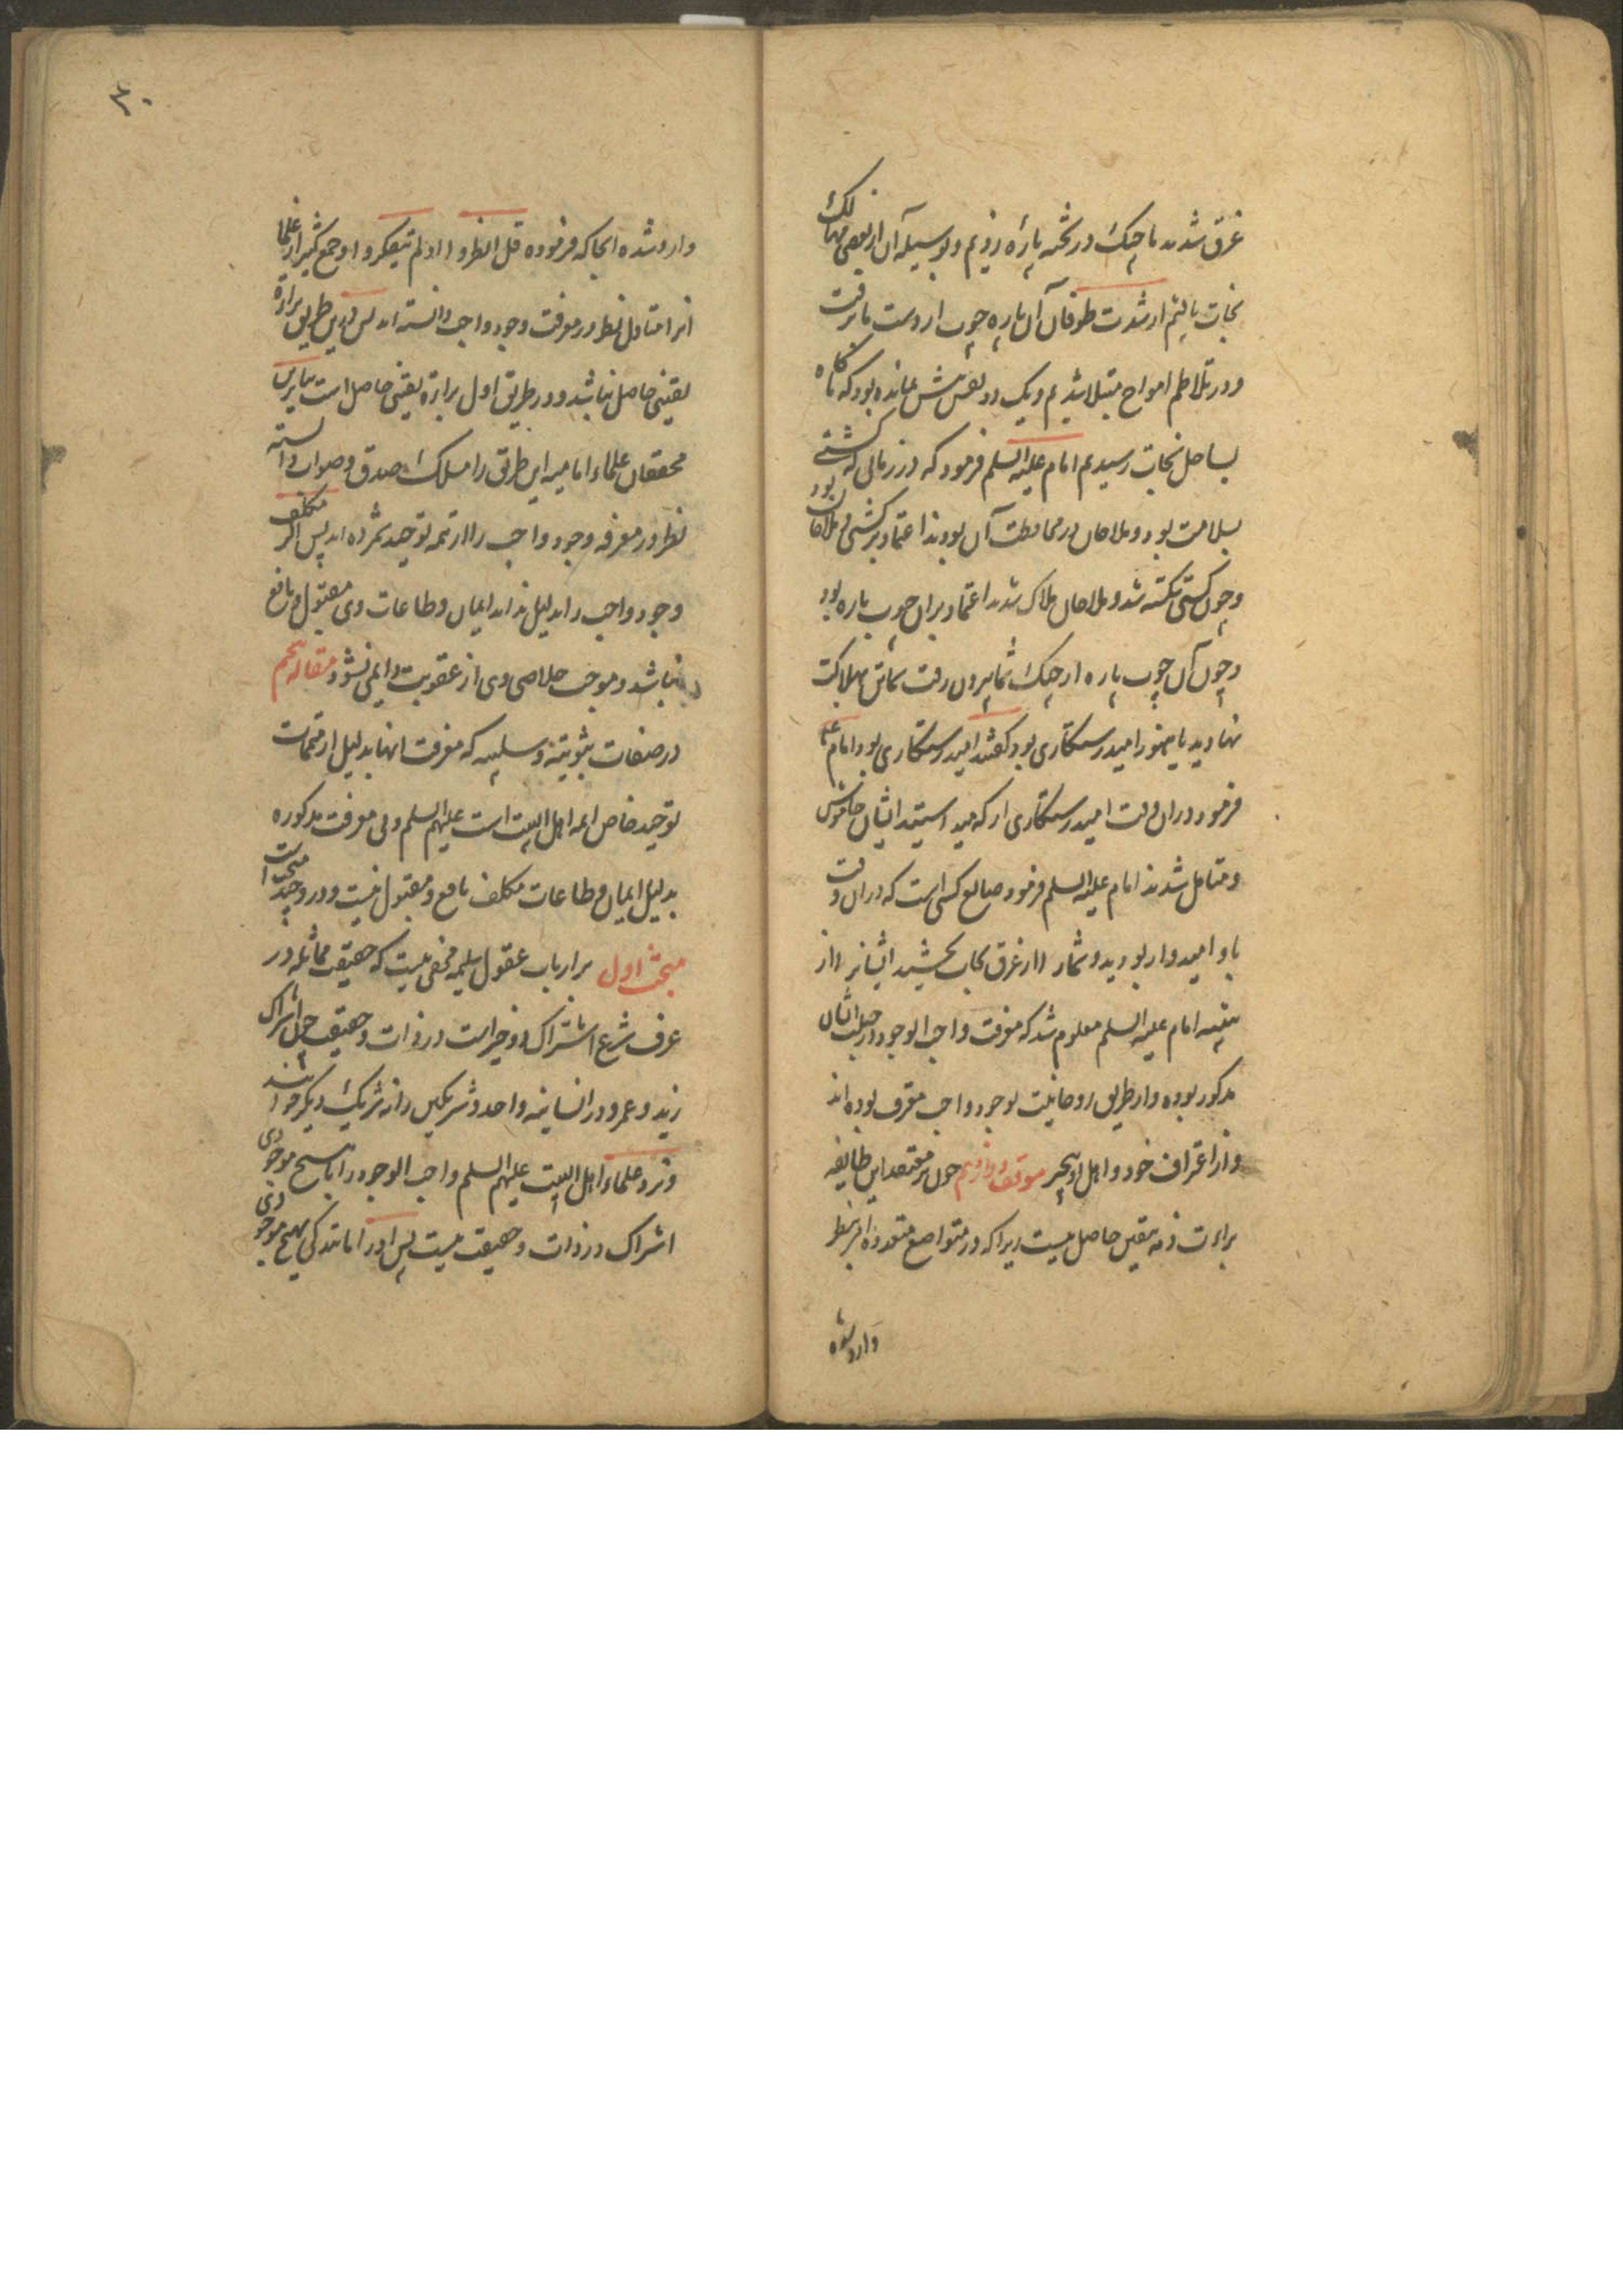 غرق شدند ما چنک در تخته پارۀ زدیم و بوسیله آن از بعضی مهالک
نجات یافتیم از شدت طوفان آن پاره چوب از دست ما برفت
و در تلاطم امواج مبتلا شدیم و یک دو نفس بیش نمانده بود که ناکاه
بساحل نجات رسیدیم امام علیه السلم فرمود که در زمانی که کشتی
بسلامت بود و ملاحان در محافظت آن بودند اعتماد بر کشتی و ملاحان بود
و چون کشتی شکسته شد و ملاحان هلاک شدند اعتماد بران چوب پاره بود
و چون آن چوب پاره از چنک شما بیرون رفت بهلاکت
نهادید یا هنوز امید رستکاری بود کفتند امید رستکاری بود امام علیه
فرمود دران وقت امید رستکاری از که میداشتید ایشان خاموش
و متامل شدند امام علیه السلم فرمود صانع کسی است که دران وقت
باو امیدوار بودید و شما را از غرق نجات بخشید ایشانرا از
تنبیه امام علیه السلم معلوم شد که معرفت واجب الوجود در جبلت ایشان
مذکور بوده و از طریق روحانیت بوجود واجب معترف بوده اند
و از اعتراف خود و اهل او بیخبر موقف دوازدهم چون بر معتقد این طایفه
براءت ذمه بیقین حاصل نیست زیرا که در مواضع متعدده امر بنظر
وارد شده
۳۰
وارد شده انجا که فرموده قل انظروا اولم یتفکروا و جمع کثیر از علما
انرا متناول نظر در معرفت وجود واجب دانسته اند پس درین طریق براءة
یقینی حاصل نباشد و در طریق اول براءة یقینی حاصل است بنابرین
محققان علماء امامیه این طریق را مسلک صدق و صواب دانسته
نظر در معرفه وجود واجب را از تتمه توحید شمرده اند پس اگر مکلف
وجود واجب را بدلیل نداند ایمان و طاعات وی مقبول و نافع
نباشد و موجب خلاصی وی از عقوبت دایمی نشود مقاله پنجم
در صفات ثبوتیه و سلبیه که معرفت انها بدلیل از متممات
توحید خاص ائمه اهل البیت است علیهم السلم و بی معرفت مذکوره
بدلیل ایمان و طاعات مکلف نافع و مقبول نیست و در و چند مبحث است
مبحث اول بر ارباب عقول سلیمه مخفی نیست که حقیقت مماثله در
عرف شرع اشتراک دو چیز است در ذات و حقیقت چون اشتراک
زید و عمرو در انسانیه واحد و شریکین را نه شریک دیکر خوانند
و نزد علماء اهل البیت علیهم السلم واجب الوجود را با هیچ موجودی
اشتراک در ذات و حقیقت نیست پس او را مانندکی بهیچ موجودی